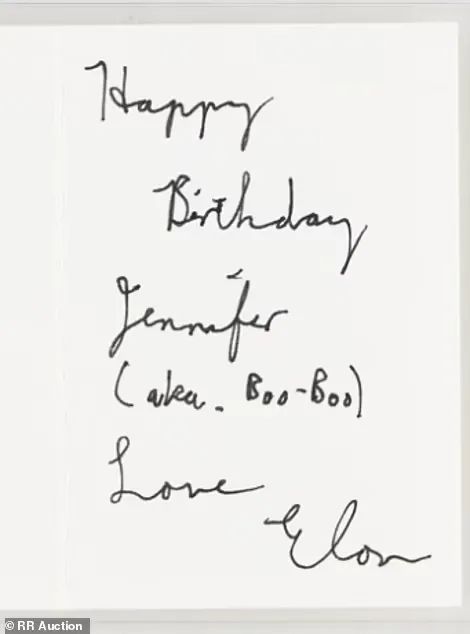 Happy
Birthday
Jennifer
(aka. Boo-Boo)
Love
Elon
© RR Auction